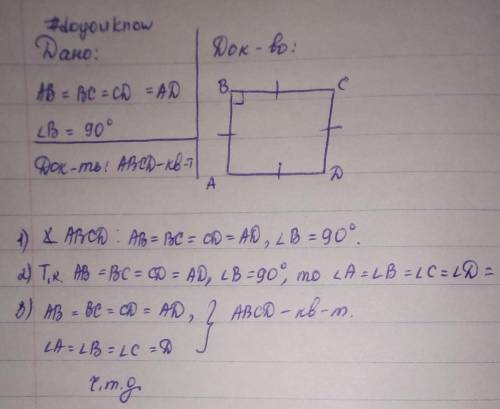 #doyouknow
Дано:
AB = BC = CD = AD
∠B = 90°
Док-ть: ABCD-кв-т
Док-во:
B C
A D
1) ABCD: AB = BC = CD = AD, ∠B = 90°.
2) Т.к. AB = BC = CD = AD, ∠B = 90°, то ∠A = ∠B = ∠C = ∠D =
3) AB = BC = CD = AD, } ABCD - кв-т.
∠A = ∠B = ∠C = D
ч.т.д.